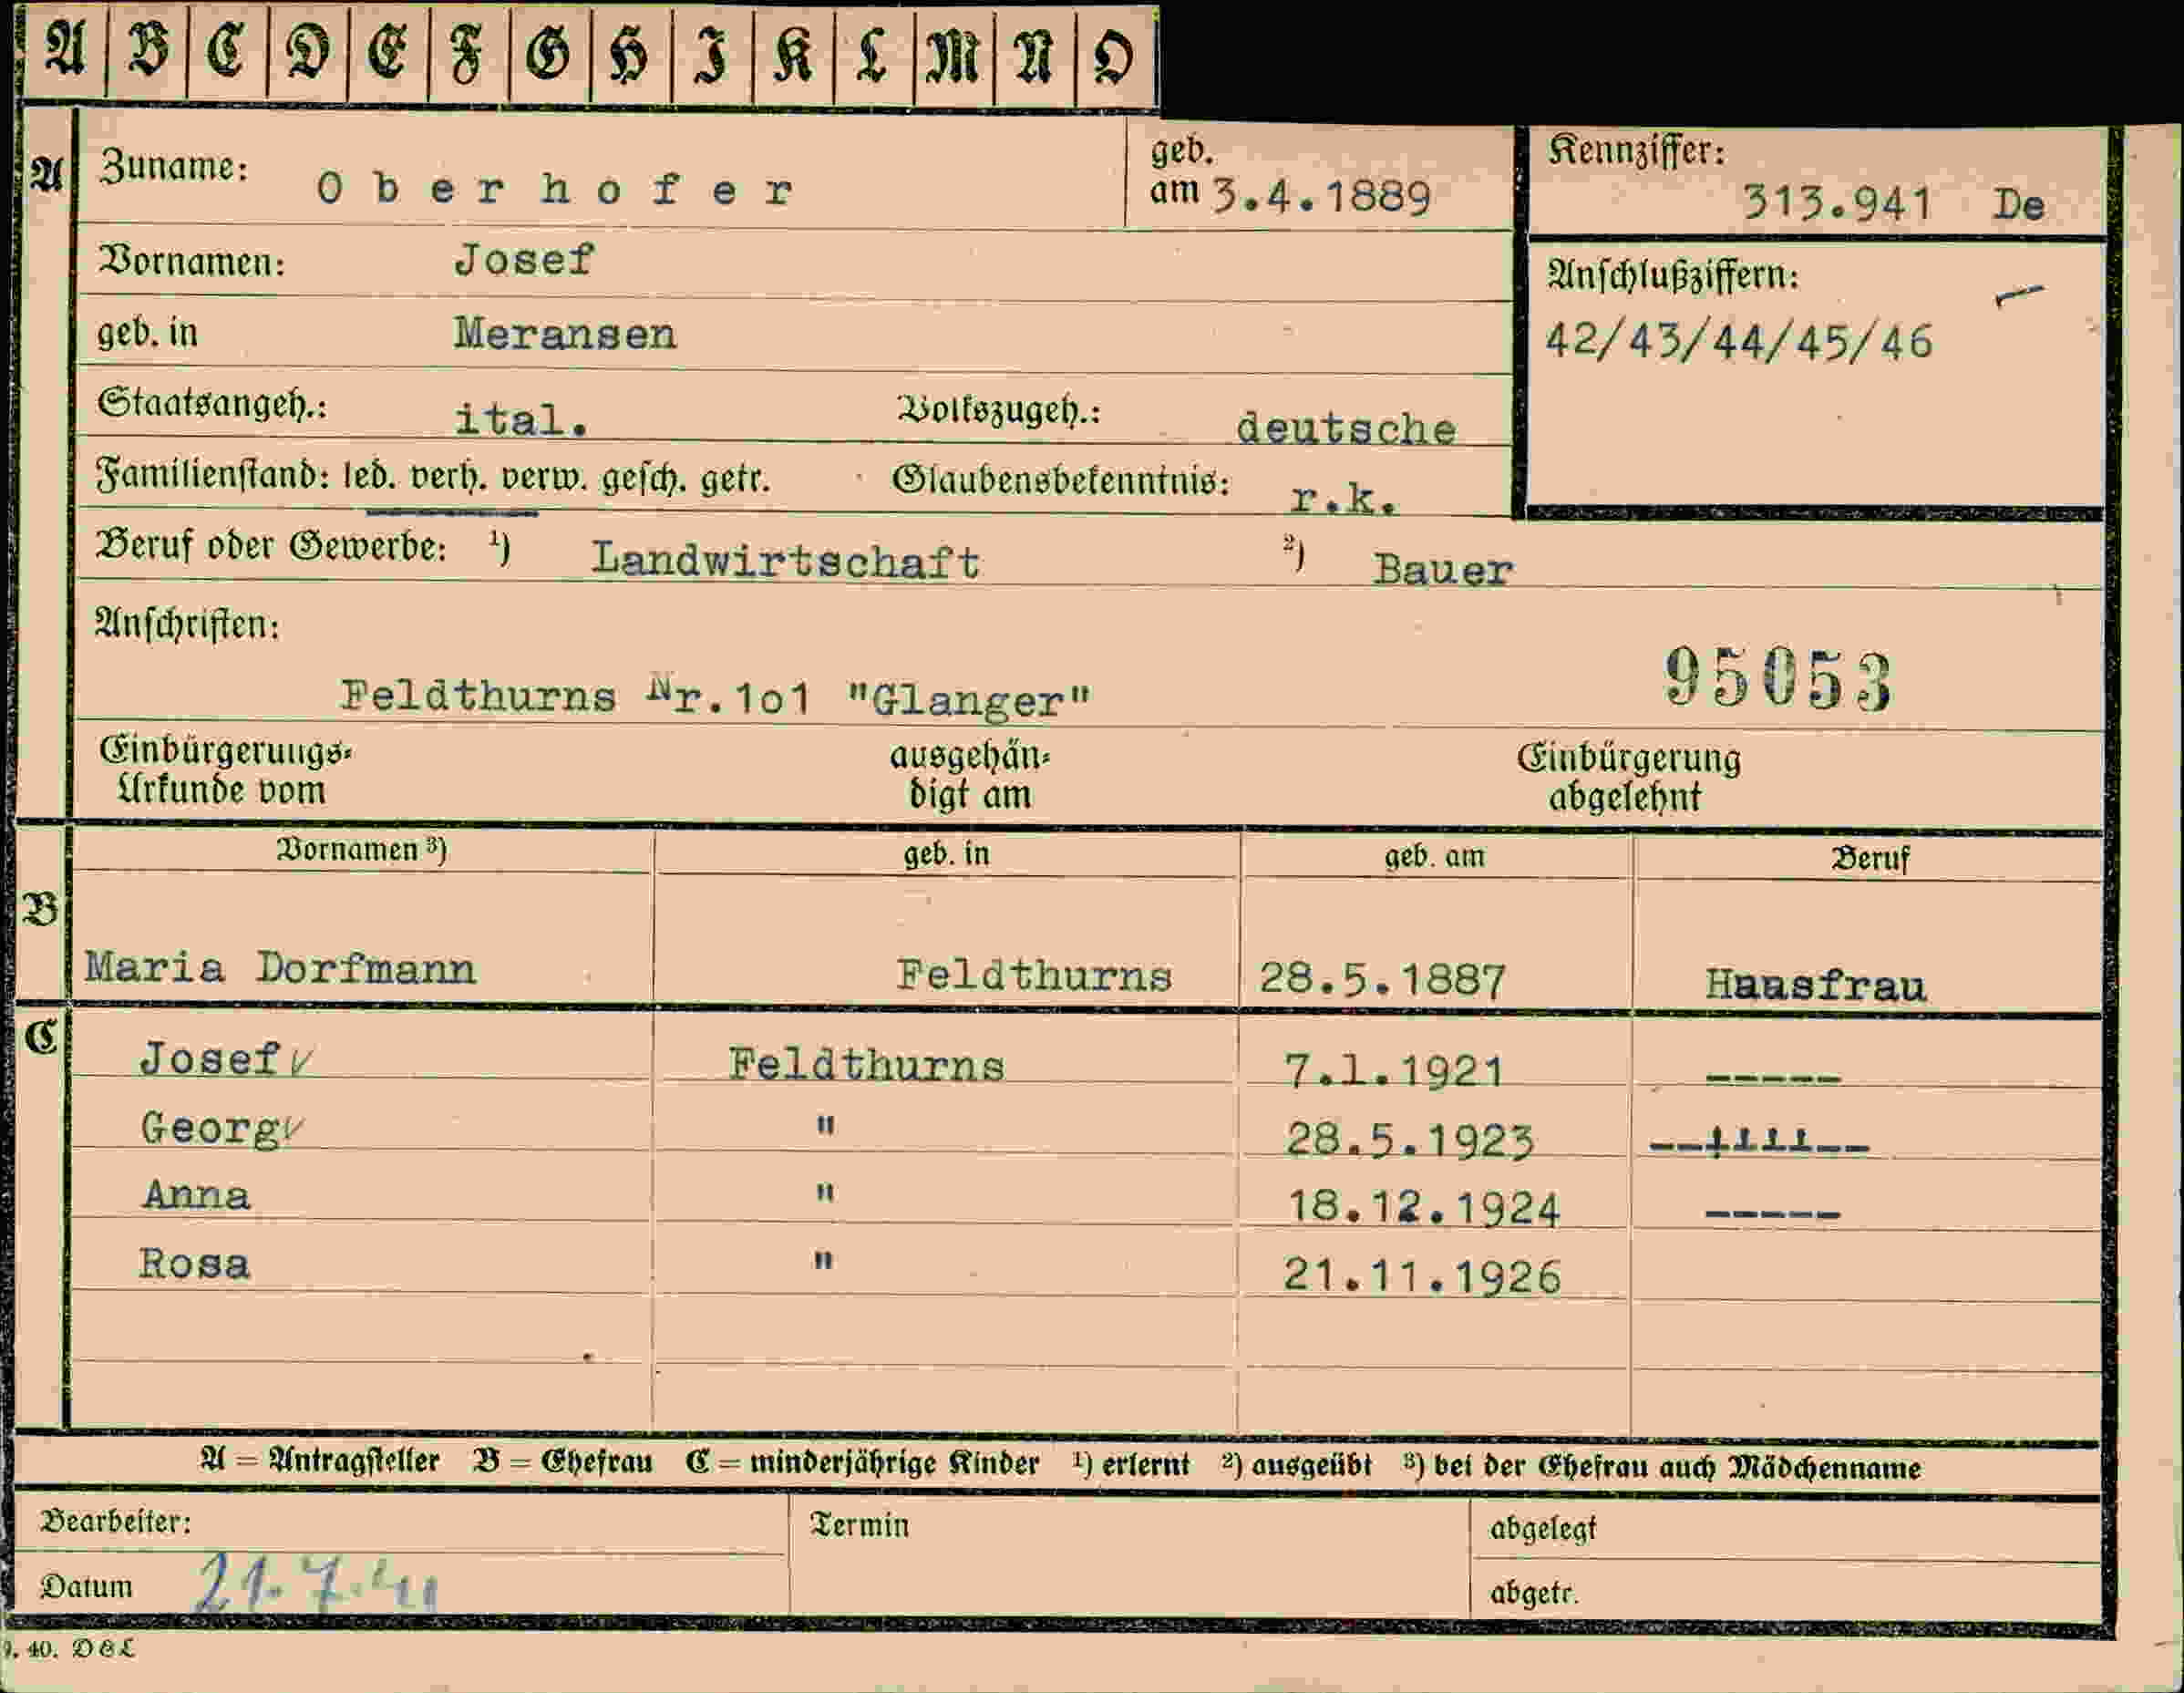 A B C D E F G H I K L M N O
A Zuname: Oberhofer geb. am 3.4.1889 Kennziffer: 313.941 De
Vornamen: Josef Anschlußziffern:
geb. in Meransen 42/43/44/45/46
Staatsangeh.: ital. Volkszugeh.: deutsche
Familienstand: led. verh. verw. gesch. getr. Glaubensbekenntnis: r.k.
Beruf oder Gewerbe: 1) Landwirtschaft 2) Bauer
Anschriften:
Feldthurns Nr.1o1 "Glanger" 95053
Einbürgerungs= ausgehän= Einbürgerung
Urkunde vom digt am abgelehnt
Vornamen 3) geb. in geb. am Beruf
B
Maria Dorfmann Feldthurns 28.5.1887 Haasfrau
C Josef ✓ Feldthurns 7.1.1921 -----
Georg ✓ " 28.5.1923
Anna " 18.12.1924 -----
Rosa " 21.11.1926
A = Antragsteller B = Ehefrau C = minderjährige Kinder 1) erlernt 2) ausgeübt 3) bei der Ehefrau auch Mädchenname
Bearbeiter: Termin abgelegt
Datum 21.7.41 abgetr.
9. 40. D&L